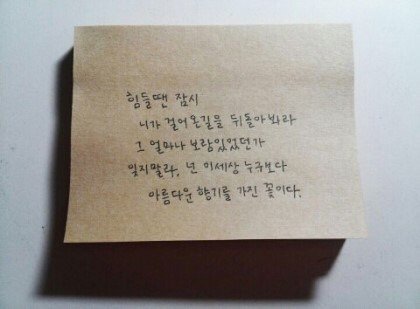 힘들땐 잠시
니가 걸어온길을 뒤돌아봐라
그 얼마나 보람있었던가
잊지말라, 넌 이세상 누구보다
아름다운 향기를 가진 꽃이다.